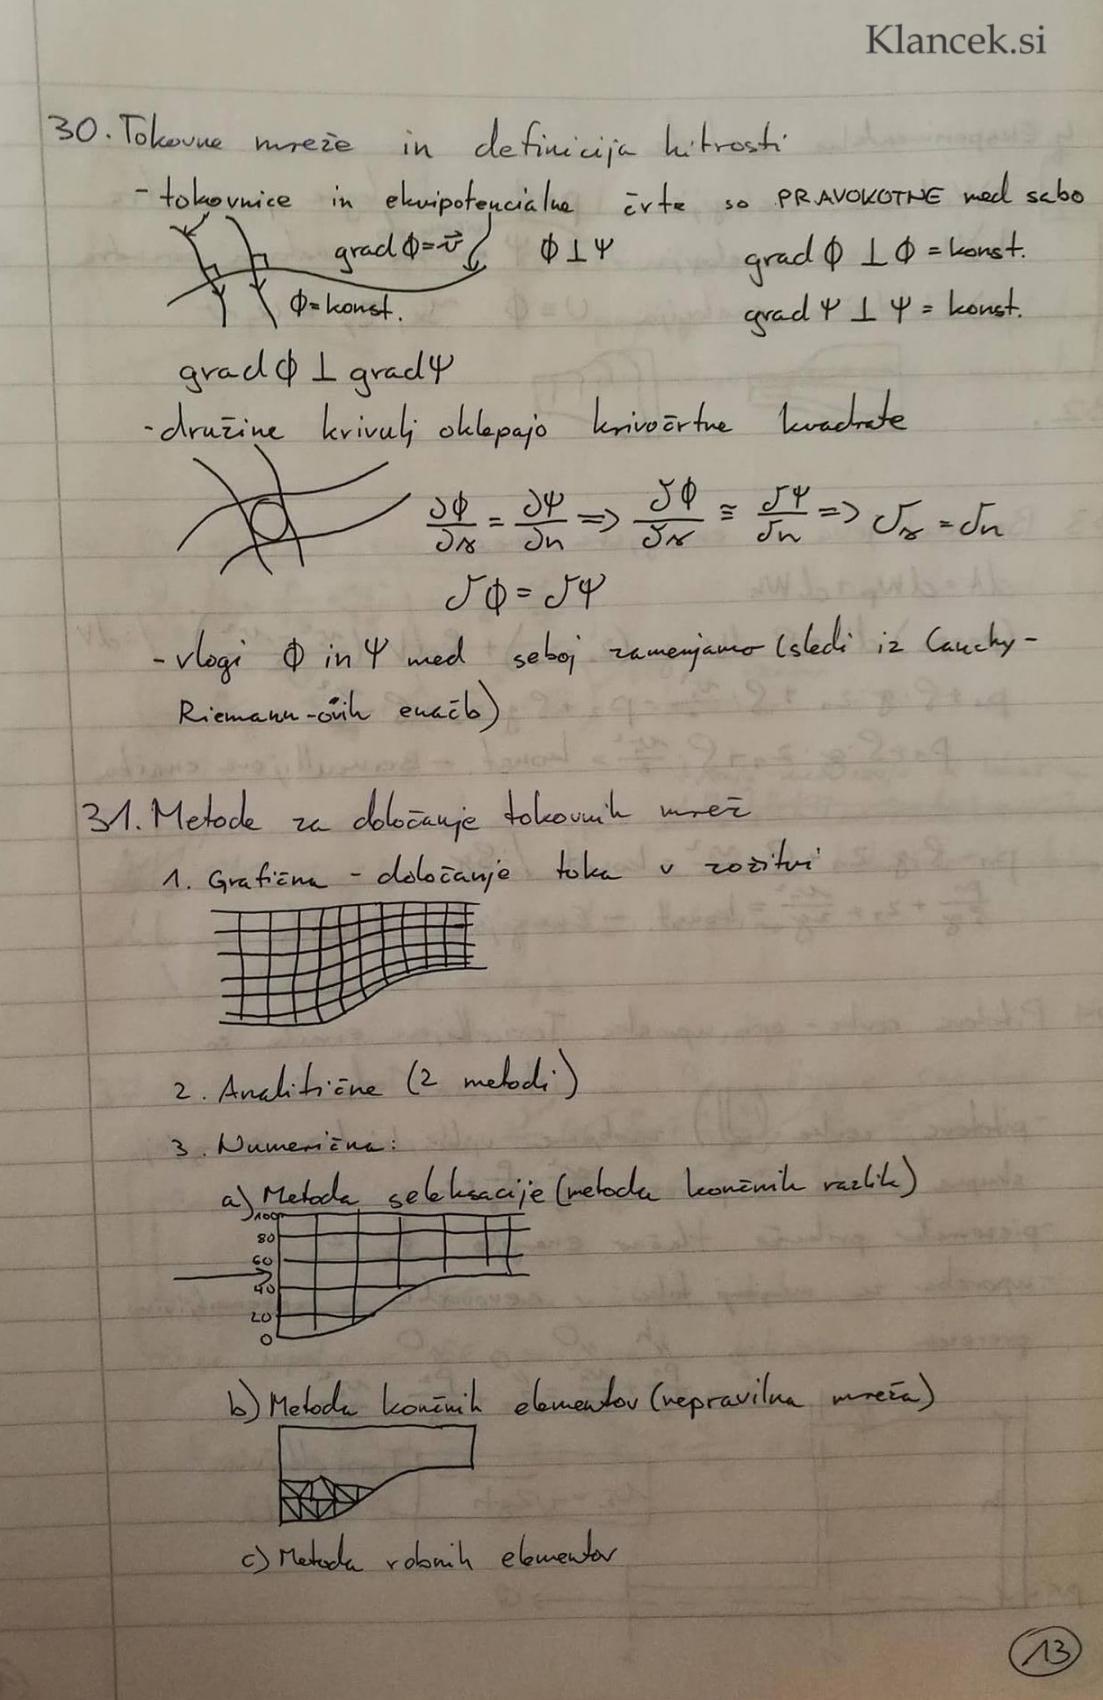 Klancek.si
30. Tokovne mreže in definicija hitrosti
- tokovnice in ekvipotencialne črte so PRAVOKOTNE med sabo
grad ϕ = v⃗ ϕ ⊥ Ψ grad ϕ ⊥ ϕ = konst.
ϕ = konst. grad Ψ ⊥ Ψ = konst.
grad ϕ ⊥ grad Ψ
- družine krivulj oklepajo krivočrtne kvadrate
∂ϕ/∂s = ∂Ψ/∂n => δϕ/δs ≅ δΨ/δn => δs = δn
δϕ = δΨ
- vlogi ϕ in Ψ med seboj zamenjamo (sledi iz Cauchy-
Riemann-ovih enačb)
31. Metode za določanje tokovnih mrež
1. Grafična - določanje toka v zožitvi
2. Analitične (2 metodi)
3. Numerična:
a) Metoda seleksacije (metoda končnih razlik)
100
80
60
40
20
0
b) Metoda končnih elementov (nepravilna mreža)
c) Metoda robnih elementov
13